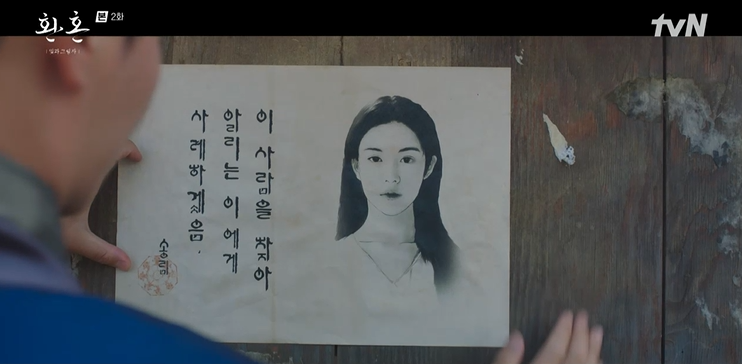 환혼
빛과 그림자
본 2화
tvN
이 사람을 찾아
알리는 이에게
사례하겠음.
송림